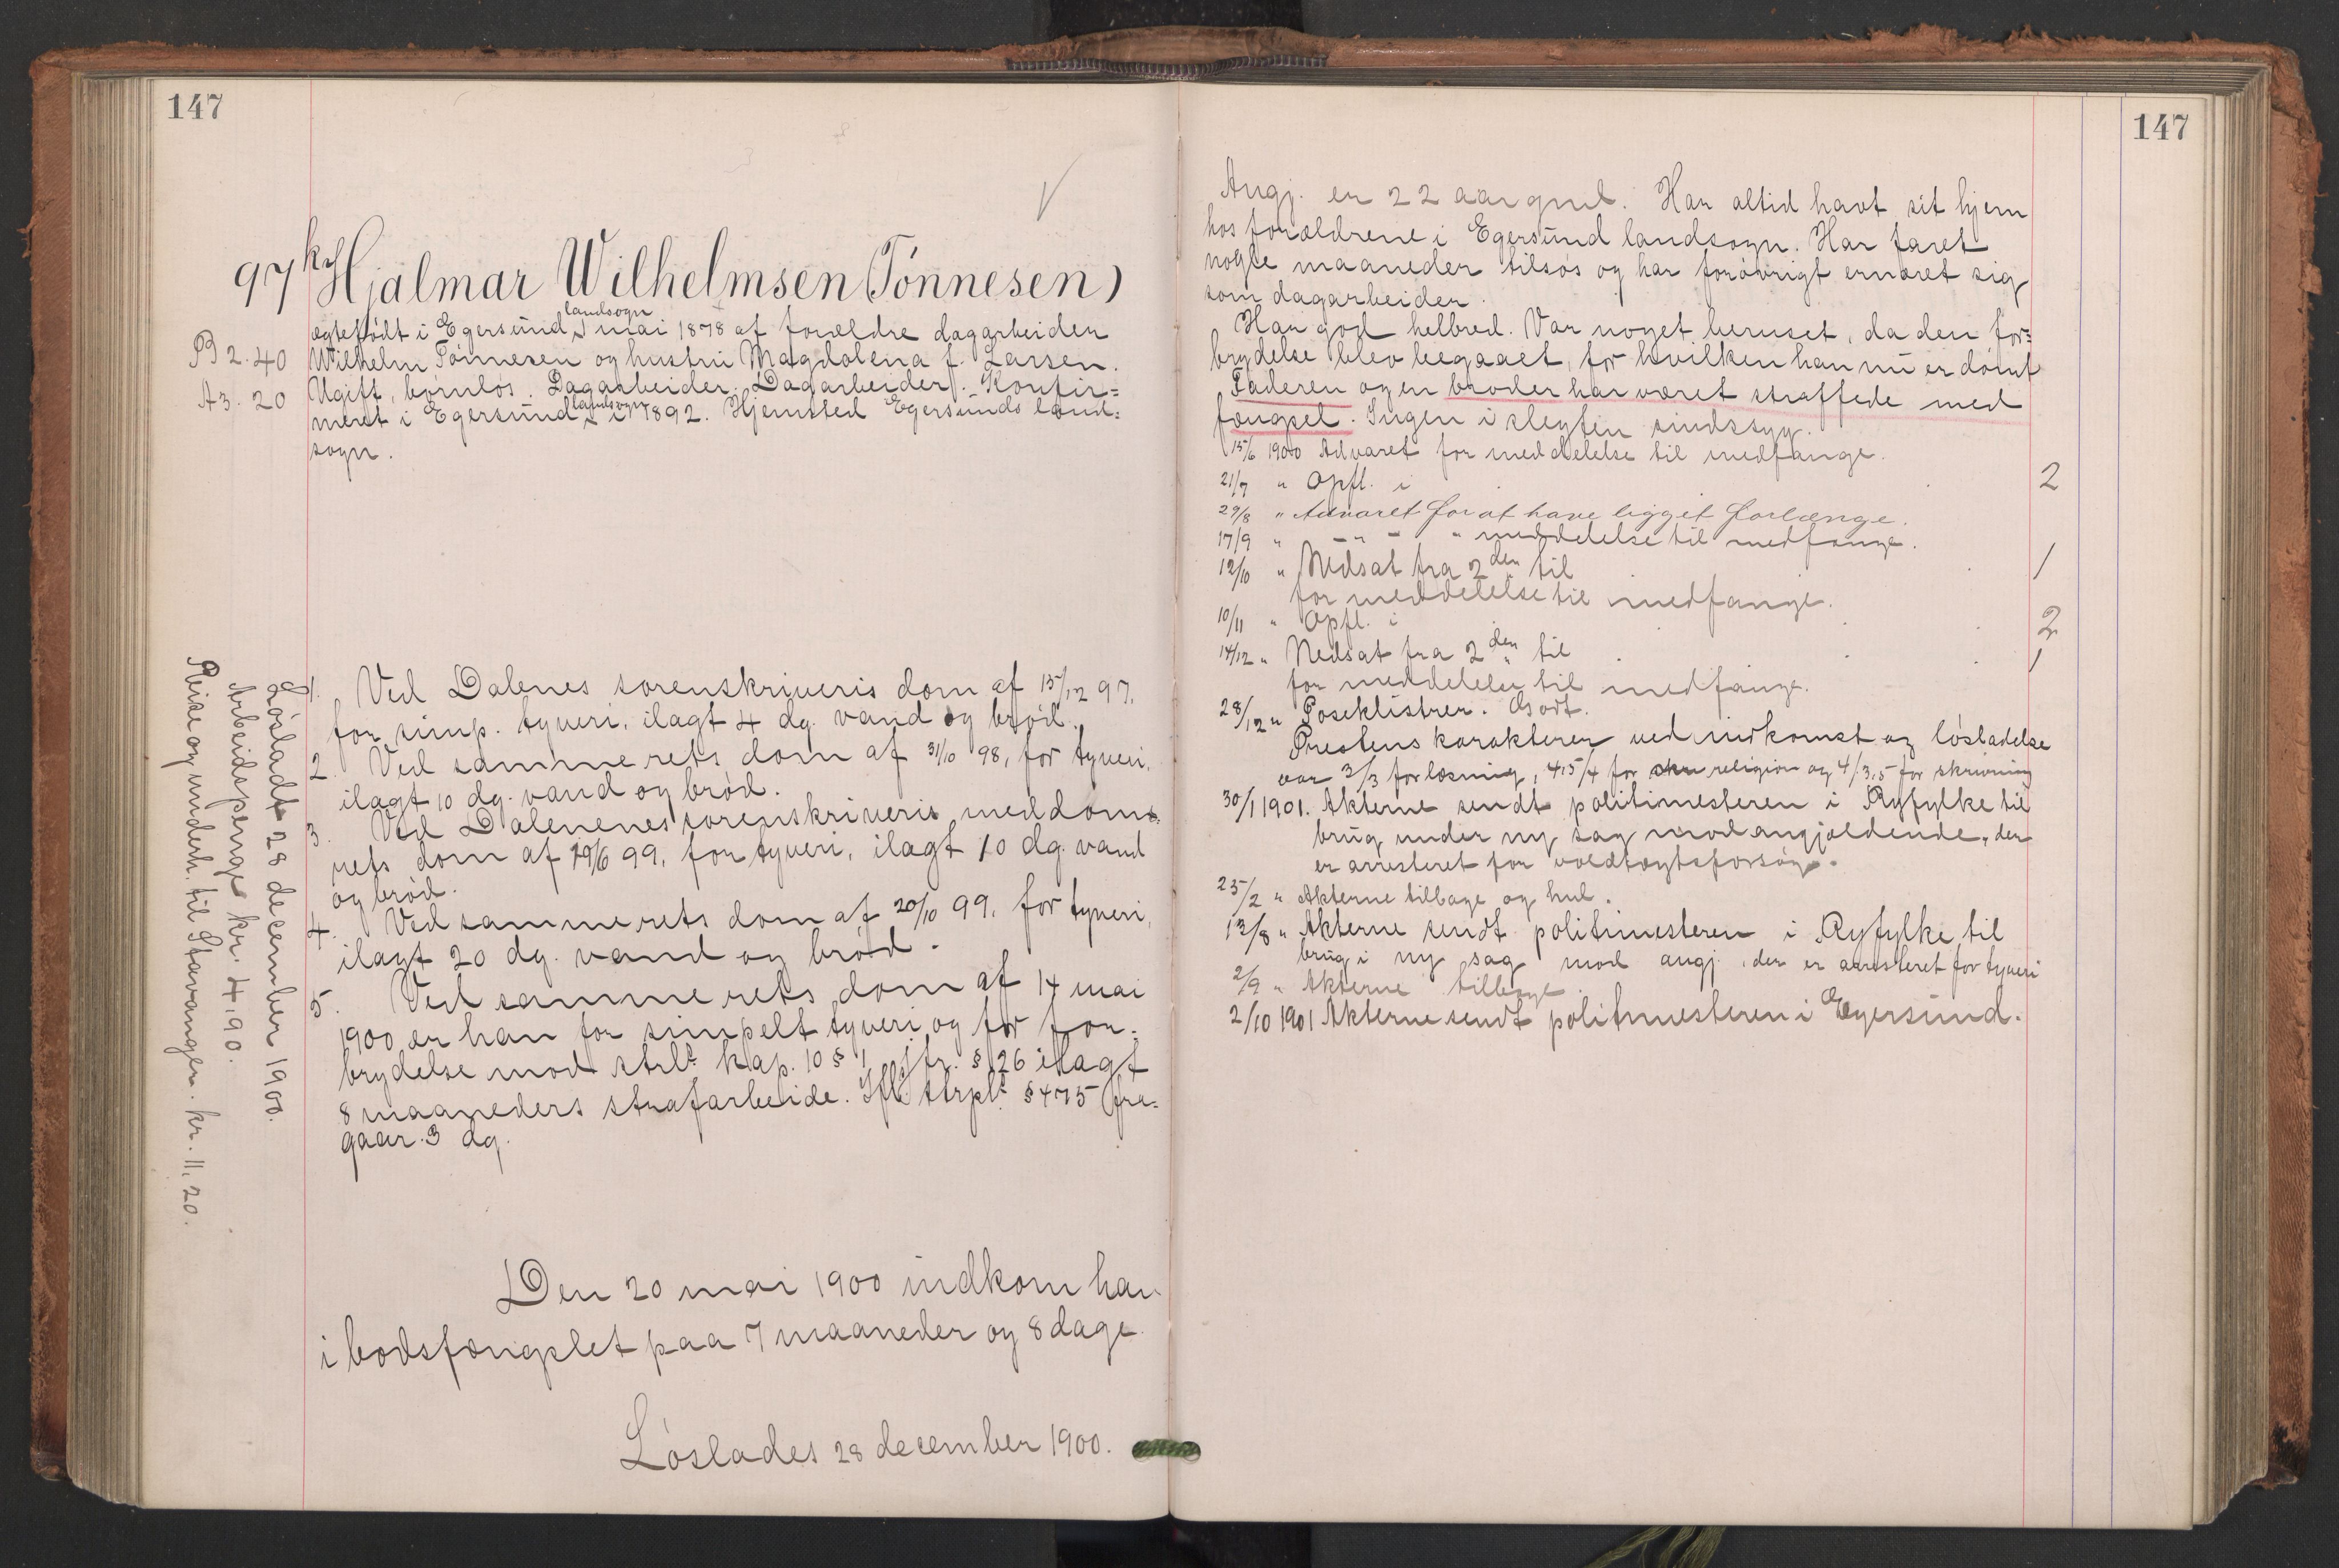 147
97 kr Hjalmar Wilhelmsen (Tønnesen)
ægtefødt i Egersund landsogn mai 1878 af forældre dagarbeider
P 2.40
Wilhelm Tønnesen og hustru Magdalena f. Larsen.
A 3.20
Ugift, børnløs. Dagarbeider. Dagarbeider. Konfir=
meret i Egersund landsogn i 1892. Hjemsted Egersunds land=
sogn.
1. Ved Dalenes sorenskriveris dom af 15/12 97,
for simp. tyveri, ilagt 4 dg. vand og brød.
2. Ved samme rets dom af 31/10 98, for tyveri,
ilagt 10 dg. vand og brød.
3. Ved Dalenenes sorenskriveris meddoms=
rets dom af 29/6 99, for tyveri, ilagt 10 dg. vand
og brød.
4. Ved samme rets dom af 20/10 99, for tyveri,
ilagt 20 dg. vand og brød.
5. Ved samme rets dom af 14 mai
1900 er han for simpelt tyveri og for for=
brydelse mod strl. kap. 10 § 1 jfr. § 26 ilagt
8 maaneders strafarbeide. Ifl. strpl. § 475 fra=
gaar 3 dg.
Løsladt 28 december 1900.
Arbeidspenge kr. 4,90.
Reise og underh. til Stavanger. kr. 11,20.
Den 20 mai 1900 indkom han
i bodsfængslet paa 7 maaneder og 8 dage
Løslades 28 december 1900.
147
Angj. er 22 aar gml. Har altid havt sit hjem
hos forældrene i Egersund landsogn. Har faret
nogle maaneder tilsøs og har forøvrigt ernæret sig
som dagarbeider.
Har god helbred. Var noget beruset, da den for=
brydelse blev begaaet, for hvilken han nu er dømt
Faderen og en broder har været straffede med
fængsel. Ingen i slegten sindssyg.
15/6 1900 Advaret for meddelelse til medfange.
21/7 " Opfl. i 2
29/8 " Advaret for at have ligget forlænge.
17/9 " — " — " meddelelse til medfange.
12/10 " Nedsat fra 2den til 1
for meddelelse til medfange.
10/11 " Opfl. i 2
14/12 " Nedsat fra 2den til 1
for meddelelse til medfange.
28/12 " Poseklistrer. Godt.
Prestens karakterer ved indkomst og løsladelse
var 3/3 for læsning, 4,5/4 for religion og 4/3,5 for skrivning
30/1 1901. Akterne sendt politimesteren i Ryfylke til
brug under ny sag mod angjældende, der
er arresteret for voldtægtsforsøg.
25/2 " Akterne tilbage og hul.
13/8 " Akterne sendt politimesteren i Ryfylke til
brug i ny sag mod angj., der er arresteret for tyveri
2/9 " Akterne tilbage.
2/10 1901 Akterne sendt politimesteren i Egersund.